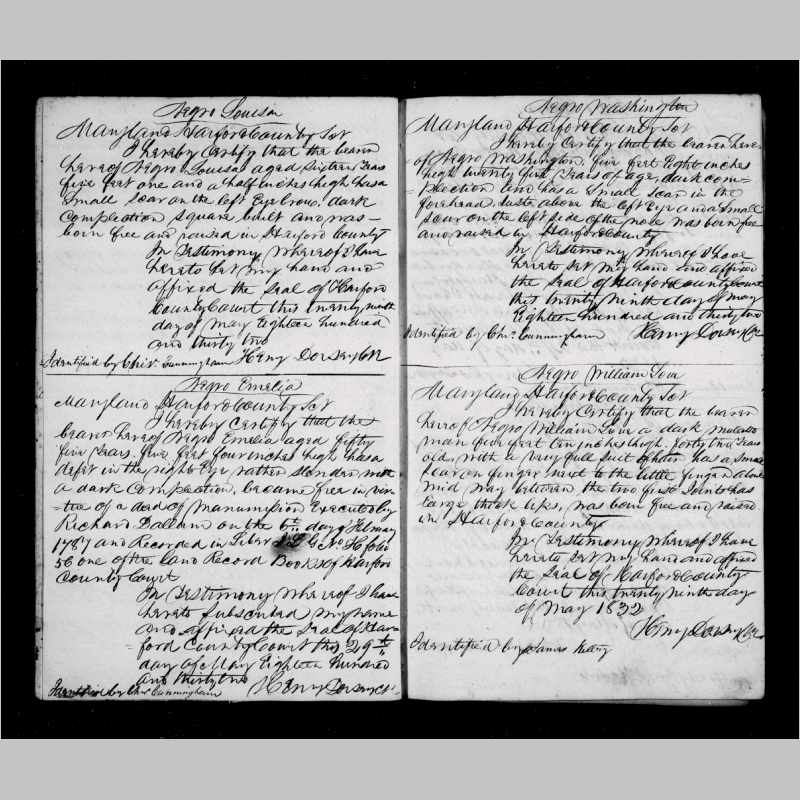 Negro Louisa
Maryland Harford County Sct
I hereby Certify that the bearer
hereof Negro Louisa aged Sixteen Years
five feet one and a half inches high has a
Small Scar on the left Eye brow, dark
Complection square built and was
born free and raised in Harford County
In Testimony whereof I have
hereto set my hand and
affixed the Seal of Harford
County Court this twenty ninth
day of May Eighteen hundred
and thirty two
Identified by Chrs. Cunningham Henry Dorsey Clk
Negro Emelia
Maryland Harford County Sct
I hereby Certify that the
bearer hereof Negro Emelia aged fifty
five Years. five feet four inches high has a
defect in the right Eye rather slender with
a dark Complection, became free in vir=
=tue of a deed of Manumission Executed by
Richard Dallam on the 6th day of February
1787 and Recorded in Liber J.L.G. No. H folio
56 one of the Land Record Books of Harford
County Court
In Testimony whereof I have
hereto Subscribed my name
and affixed the Seal of Har=
ford County Court this 29th
day of May Eighteen hundred
and thirty two
Identified by Chrs Cunningham Henry Dorsey Clk
Negro Washington
Maryland Harford County Sct
I hereby Certify that the bearer here=
of Negro Washington, five feet Eight inches
high twenty five Years of age, dark com=
=plection and has a Small Scar in the
forehead Just above the left Eye and a Small
Scar on the left side of the nose was born free
and raised in Harford County
In Testimony whereof I have
hereto set my hand and affixed
the Seal of Harford County Court
this twenty Ninth day of May
Eighteen hundred and thirty two
Identified by Chrs. Cunningham Henry Dorsey Clk
Negro William
Maryland Harford County Sct
I hereby Certify that the bearer
hereof Negro William a dark mulatto
man five feet ten inches high. forty two Years
old, with a very full suit of hair has a Small
Scar on finger next to the little finger about
mid way between the two first Joints has
large thick lips, was born free and raised
in Harford County
In Testimony whereof I have
hereto set my hand and affixed
the Seal of Harford County
Court this twenty Ninth day
of May 1832
Henry Dorsey Clk
Identified by James